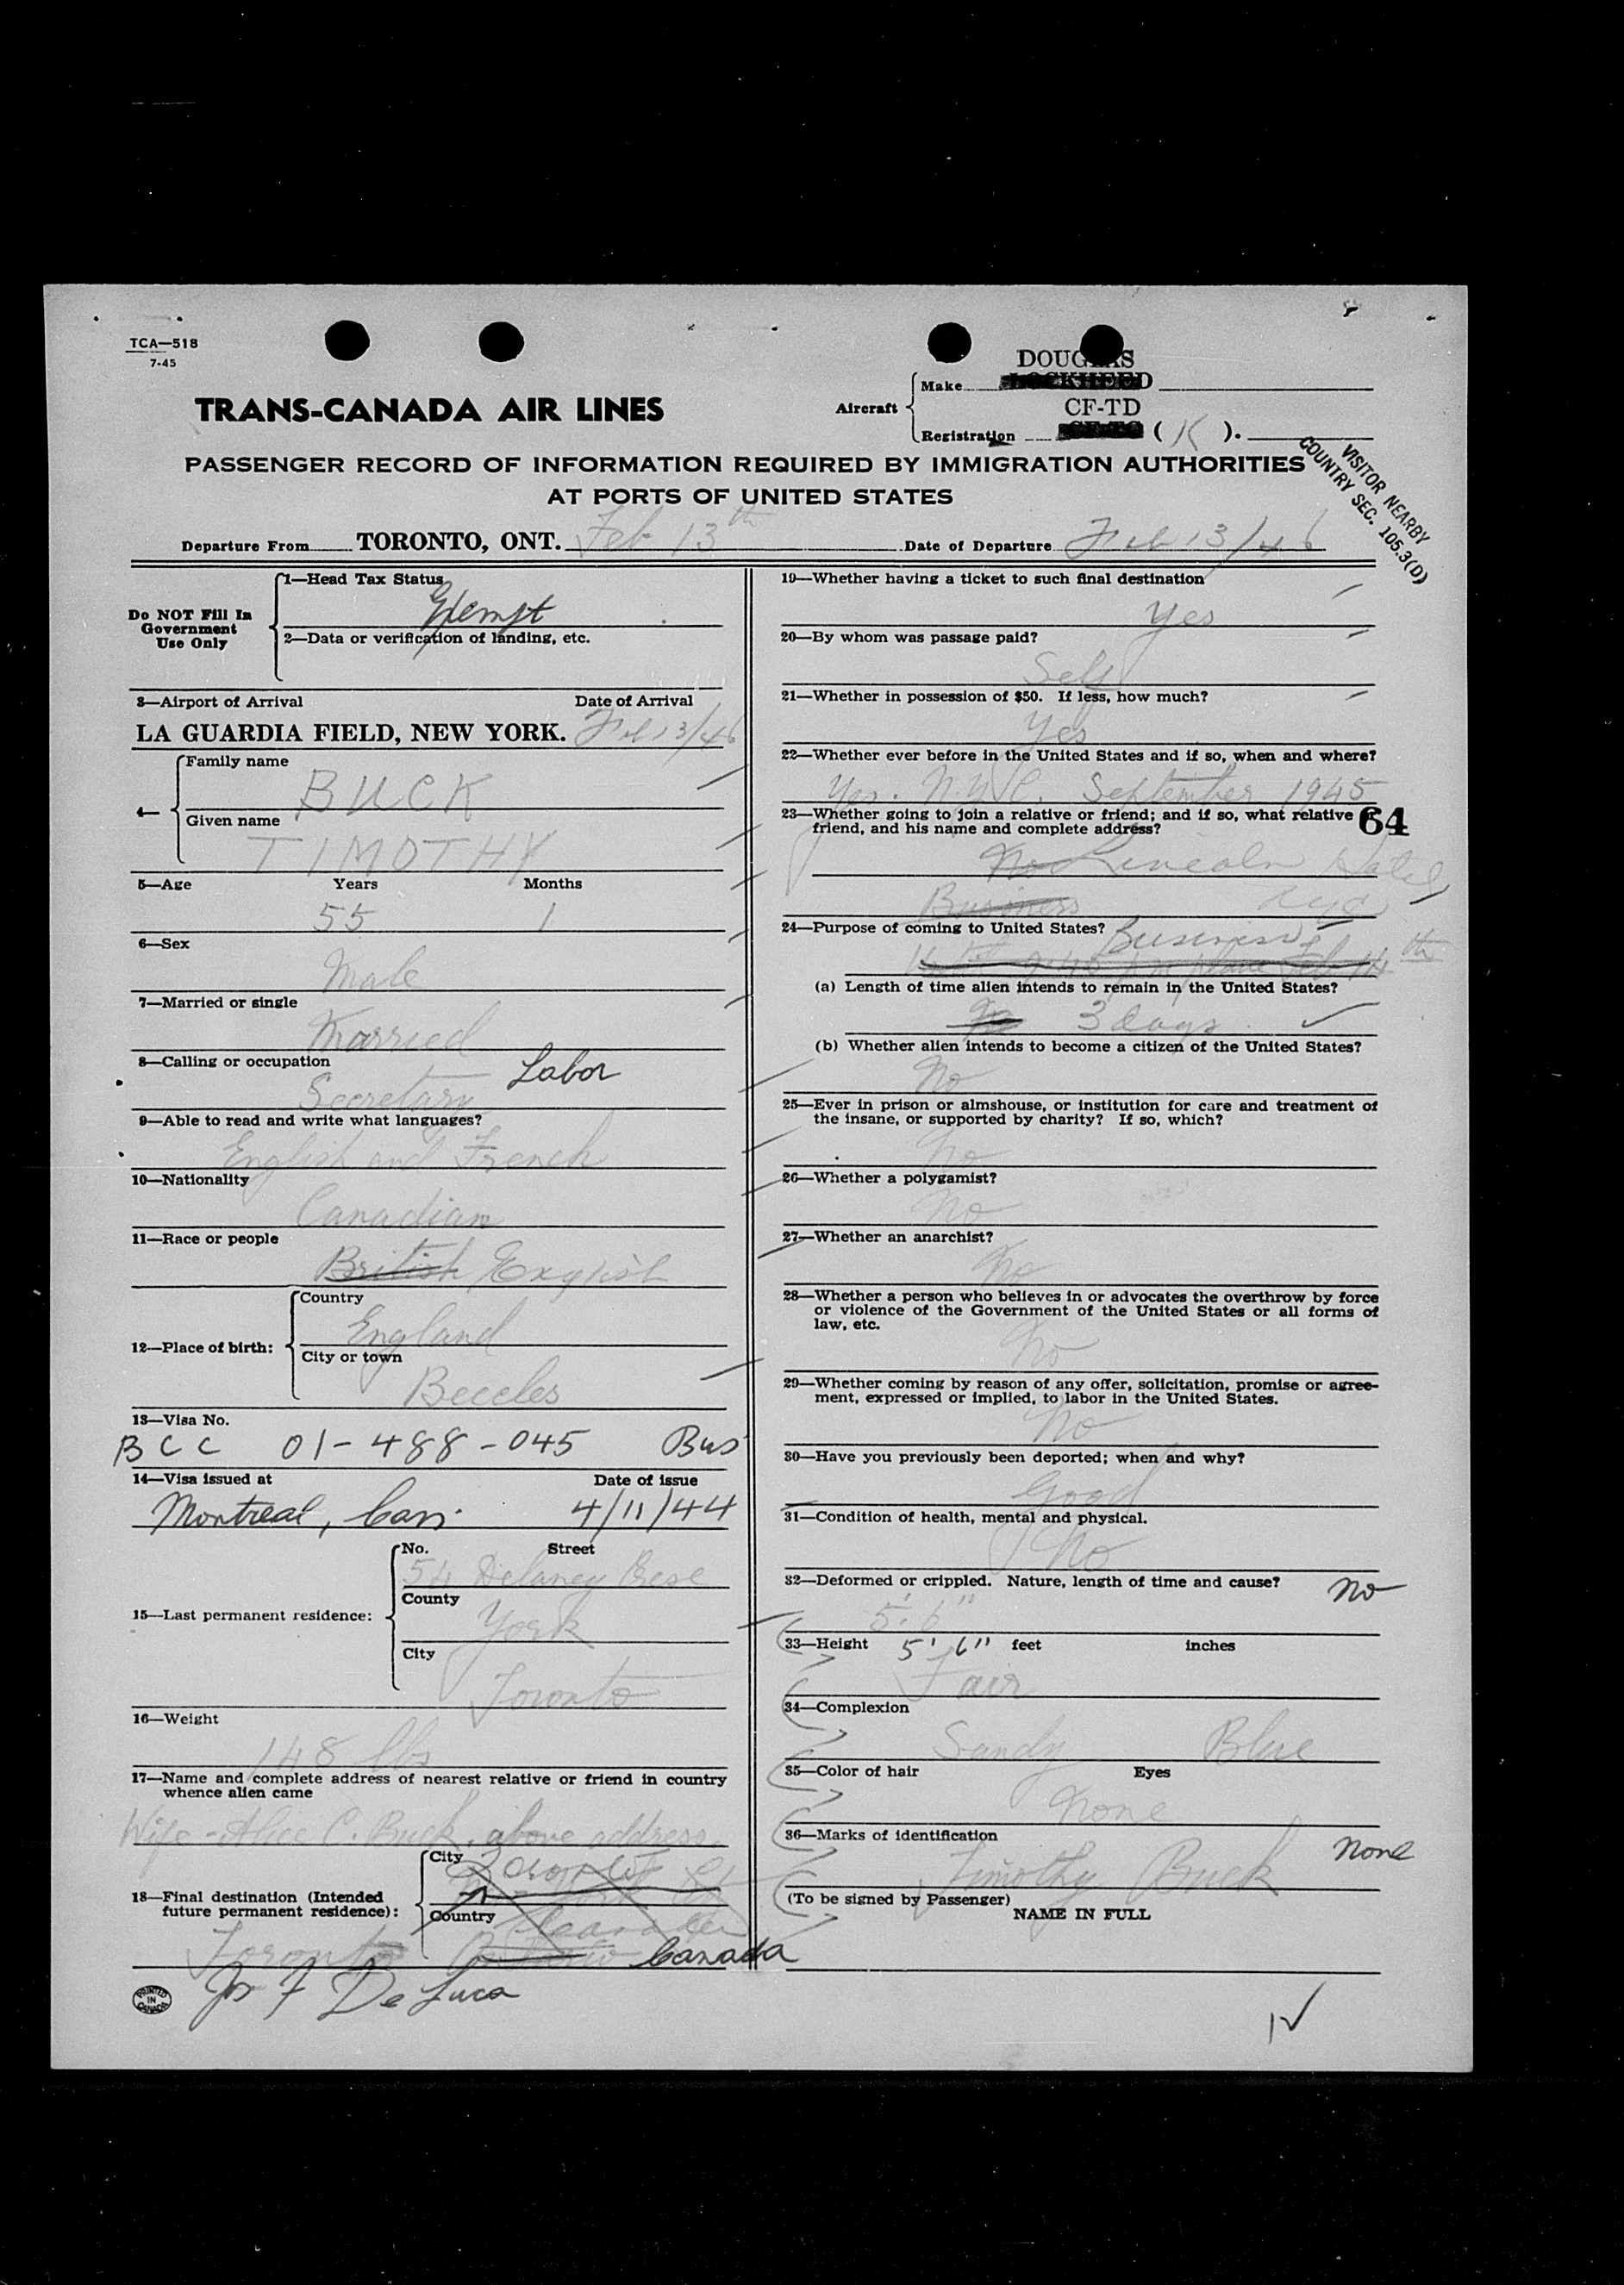 TCA—518
7-45
DOUGLAS
Make LOCKHEED
TRANS-CANADA AIR LINES
Aircraft
CF-TD
Registration ( K ).
PASSENGER RECORD OF INFORMATION REQUIRED BY IMMIGRATION AUTHORITIES
AT PORTS OF UNITED STATES
VISITOR NEARBY
COUNTRY SEC. 105.3(D)
Departure From TORONTO, ONT. Feb 13th Date of Departure Feb 13/46
Do NOT Fill In
Government
Use Only
1—Head Tax Status
Exempt
2—Data or verification of landing, etc.
3—Airport of Arrival Date of Arrival
LA GUARDIA FIELD, NEW YORK. Feb 13/46
4—
Family name
BUCK
Given name
TIMOTHY
5—Age Years Months
55 1
6—Sex
Male
7—Married or single
Married
8—Calling or occupation
Labor
Secretary
9—Able to read and write what languages?
English and French
10—Nationality
Canadian
11—Race or people
British English
12—Place of birth:
Country
England
City or town
Beccles
13—Visa No.
BCC 01-488-045 Bus
14—Visa issued at Date of issue
Montreal, Can. 4/11/44
15—Last permanent residence:
No. Street
54 Delaney Cresc
County
York
City
Toronto
16—Weight
148 lbs
17—Name and complete address of nearest relative or friend in country
whence alien came
Wife - Alice C. Buck, above address
18—Final destination (Intended
future permanent residence):
City
Country
Toronto Canada
Jos F De Luca
PRINTED IN CANADA
19—Whether having a ticket to such final destination
Yes
20—By whom was passage paid?
Self
21—Whether in possession of $50. If less, how much?
Yes
22—Whether ever before in the United States and if so, when and where?
Yes. N.Y.C. September 1945
23—Whether going to join a relative or friend; and if so, what relative or
friend, and his name and complete address?
64
No Lincoln Hotel
Business NYC
24—Purpose of coming to United States?
Business
(a) Length of time alien intends to remain in the United States?
3 days
(b) Whether alien intends to become a citizen of the United States?
No
25—Ever in prison or almshouse, or institution for care and treatment of
the insane, or supported by charity? If so, which?
No
26—Whether a polygamist?
No
27—Whether an anarchist?
No
28—Whether a person who believes in or advocates the overthrow by force
or violence of the Government of the United States or all forms of
law, etc.
No
29—Whether coming by reason of any offer, solicitation, promise or agree-
ment, expressed or implied, to labor in the United States.
No
30—Have you previously been deported; when and why?
Good
31—Condition of health, mental and physical.
No
32—Deformed or crippled. Nature, length of time and cause? No
5' 6"
33—Height 5' 6" feet inches
Fair
34—Complexion
Sandy Blue
35—Color of hair Eyes
None
36—Marks of identification None
Timothy Buck
(To be signed by Passenger)
NAME IN FULL